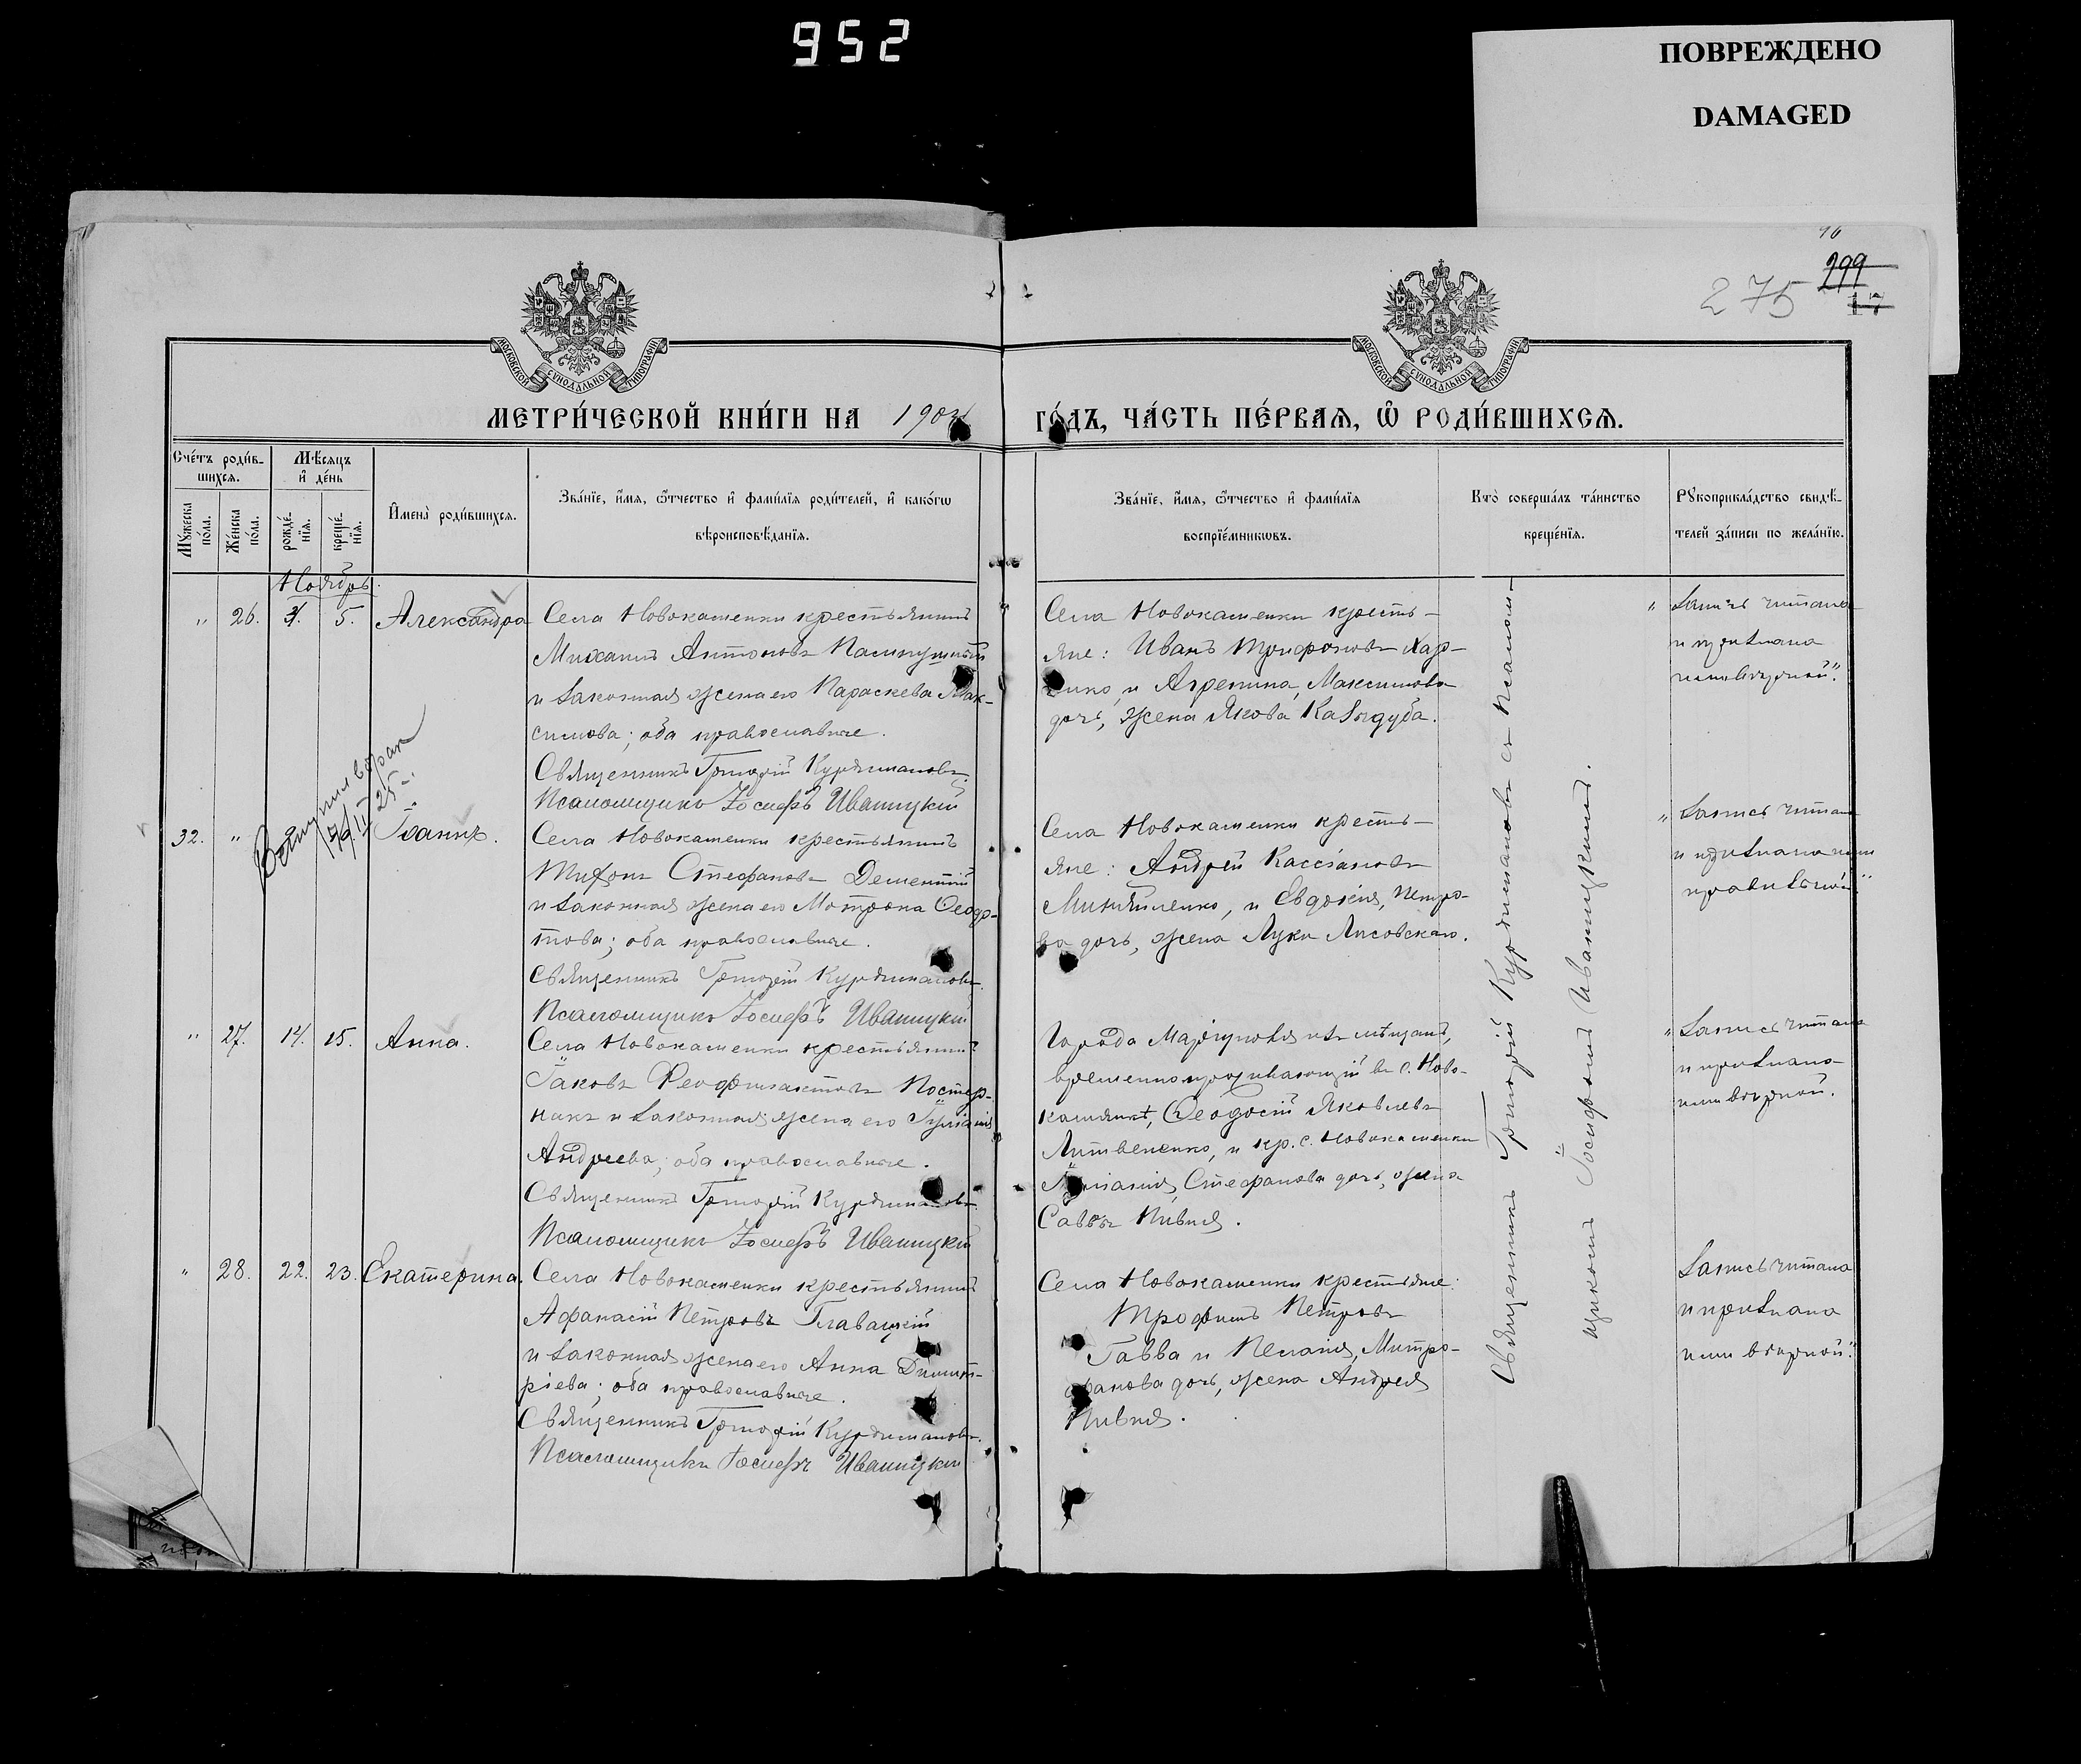 952
ПОВРЕЖДЕНО
DAMAGED
275
299
17
МОСКОВСКОЙ СУНОДАЛЬНОЙ ТИПОГРАФІИ
МОСКОВСКОЙ СУНОДАЛЬНОЙ ТИПОГРАФІИ
МЕТРИ́ЧЕСКОЙ КНИ́ГИ НА 190
ГО́ДЪ, ЧА́СТЬ ПЕ́РВАЯ, Ѡ РОДИ́ВШИХСЯ.
Сче́тъ роди́в-
шихся.
Мꙋ́жеска по́ла.
Же́нска по́ла.
Мѣ́сяцъ
и́ де́нь
рожде́-
нїя.
креще́-
нїя.
И҆мена̀ роди́вшихся.
Зва́нїе, и҆́мя, ѻ҆́тчество и҆ фами́лїя роди́телей, и҆ како́гѡ
вѣроисповѣ́данїя.
Зва́нїе, и҆́мя, ѻ҆́тчество и҆ фами́лїя
воспрїе́мникѡвъ.
Кто̀ соверша́лъ та́инство
креще́нїя.
Рꙋкоприкла́дство свидѣ́-
телей за́писи по жела́нїю.
Ноябрь.
" 26. 5. Александра
Села Новокаменки крестьянинъ
Михаилъ Антоновъ
и законная жена его Параскева Мак-
симова; оба православные.
Священникъ Григорій Курдимановъ.
Псаломщикъ Іосифъ Иваницкій
Села Новокаменки кресть-
яне: Иванъ Трифоновъ Хар-
и Агрепина, Максимова
дочь, жена Якова Кавыдуба.
Запись читана
и признана
ими вѣрной."
Вступил в брак
25
32. " Іоаннъ.
Села Новокаменки крестьянинъ
Стефановъ Дементій
и законная жена его Мотрона Ѳеодо-
това; оба православные.
Священникъ Григорій Курдимановъ.
Псаломщикъ Іосифъ Иваницкій
Села Новокаменки кресть-
яне: Андрей Кассіановъ
и Евдокія, Петро-
ва дочь, жена Луки Лисовскаго.
Запись читана
и признана ими
" 27. 14. 15. Анна.
Села Новокаменки крестьянинъ
Іаковъ Феофилактовъ Постер-
накъ и законная жена его Іуліанія
Андреева; оба православные.
Священникъ Григорій Курдимановъ.
Псаломщикъ Іосифъ Иваницкій
Города Маріуполя изъ мѣщанъ,
временно проживающій въ с. Ново-
каменкѣ, Ѳеодосій Яковлевъ
Литвененко, и кр. с. Новокаменки
Стефанова дочь, жена
Саввы Пивня.
Запись читана
и признана
ими вѣрной.
" 28. 22. 23. Екатерина.
Села Новокаменки крестьянинъ
Афанасій Петровъ Главацкій
и законная жена его Анна Димит-
ріева; оба православные.
Священникъ Григорій Курдимановъ.
Псаломщикъ Іосифъ Иваницкій
Села Новокаменки крестьяне:
Трофимъ Петровъ
Гавва и Пелагія, Митро-
фанова дочь, жена Андрея
Пивня.
Запись читана
и признана
ими вѣрной."
Священникъ Григорій Курдимановъ съ псалом-
щикомъ Іосифомъ Иваницкимъ.